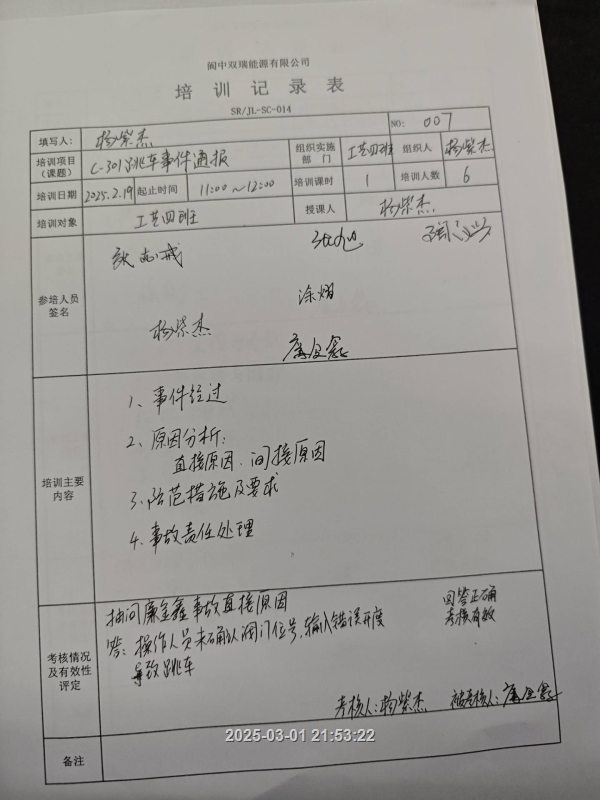 阆中双瑞能源有限公司
培训记录表
SR/JL-SC-014
NO: 007
填写人: 杨紫杰
培训项目(课题) C-301跳车事件通报 组织实施部门 工艺四班 组织人 杨紫杰
培训日期 2025.2.19 起止时间 11:00~12:00 培训课时 1 培训人数 6
培训对象 工艺四班 授课人 杨紫杰
参培人员签名
张志戒
涂熠
杨紫杰
廉金鑫
培训主要内容
1、事件经过
2、原因分析:
直接原因、间接原因
3、防范措施及要求
4、事故责任处理
考核情况及有效性评定
抽问廉金鑫事故直接原因
答:操作人员未确认阀门位号,输入错误开度
导致跳车
回答正确
考核有效
考核人:杨紫杰 被考核人:廉金鑫
2025-03-01 21:53:22
备注